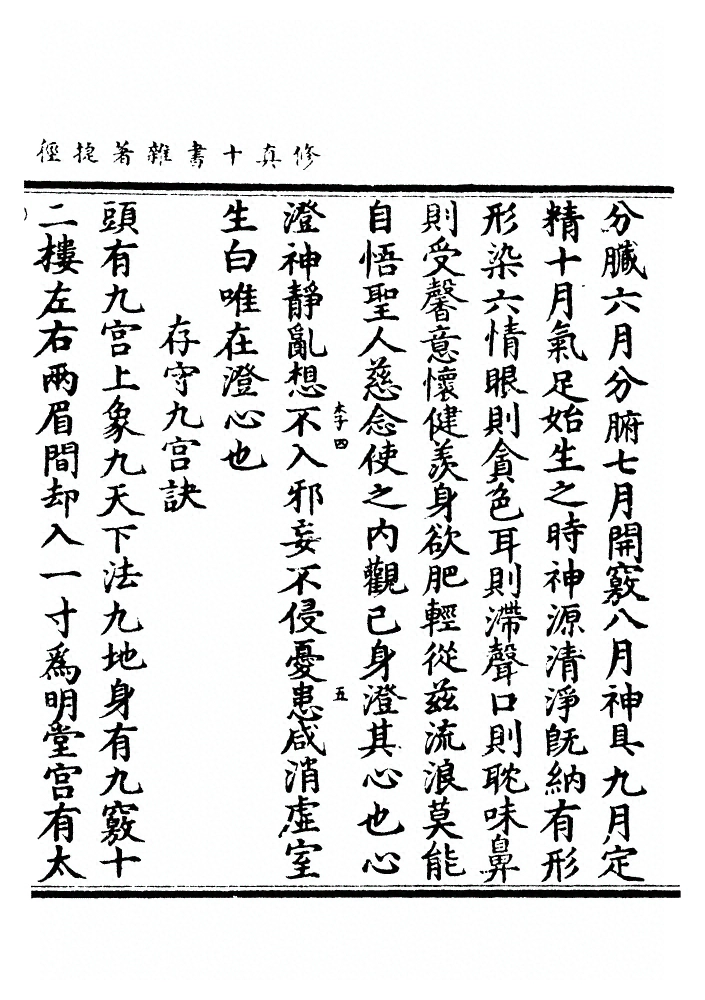 修真十書雜著捷徑
分臟六月分腑七月開竅八月神具九月定
精十月氣足始生之時神源清淨既納有形
形染六情眼則貪色耳則滯聲口則耽味鼻
則受馨意懷健羨身欲肥輕從茲流浪莫能
自悟聖人慈念使之内觀己身澄其心也心
澄神靜亂想不入邪妄不侵憂患咸消虛室
生白唯在澄心也
存守九宮訣
頭有九宮上象九天下法九地身有九竅十
二樓左右兩眉間却入一寸爲明堂宮有太